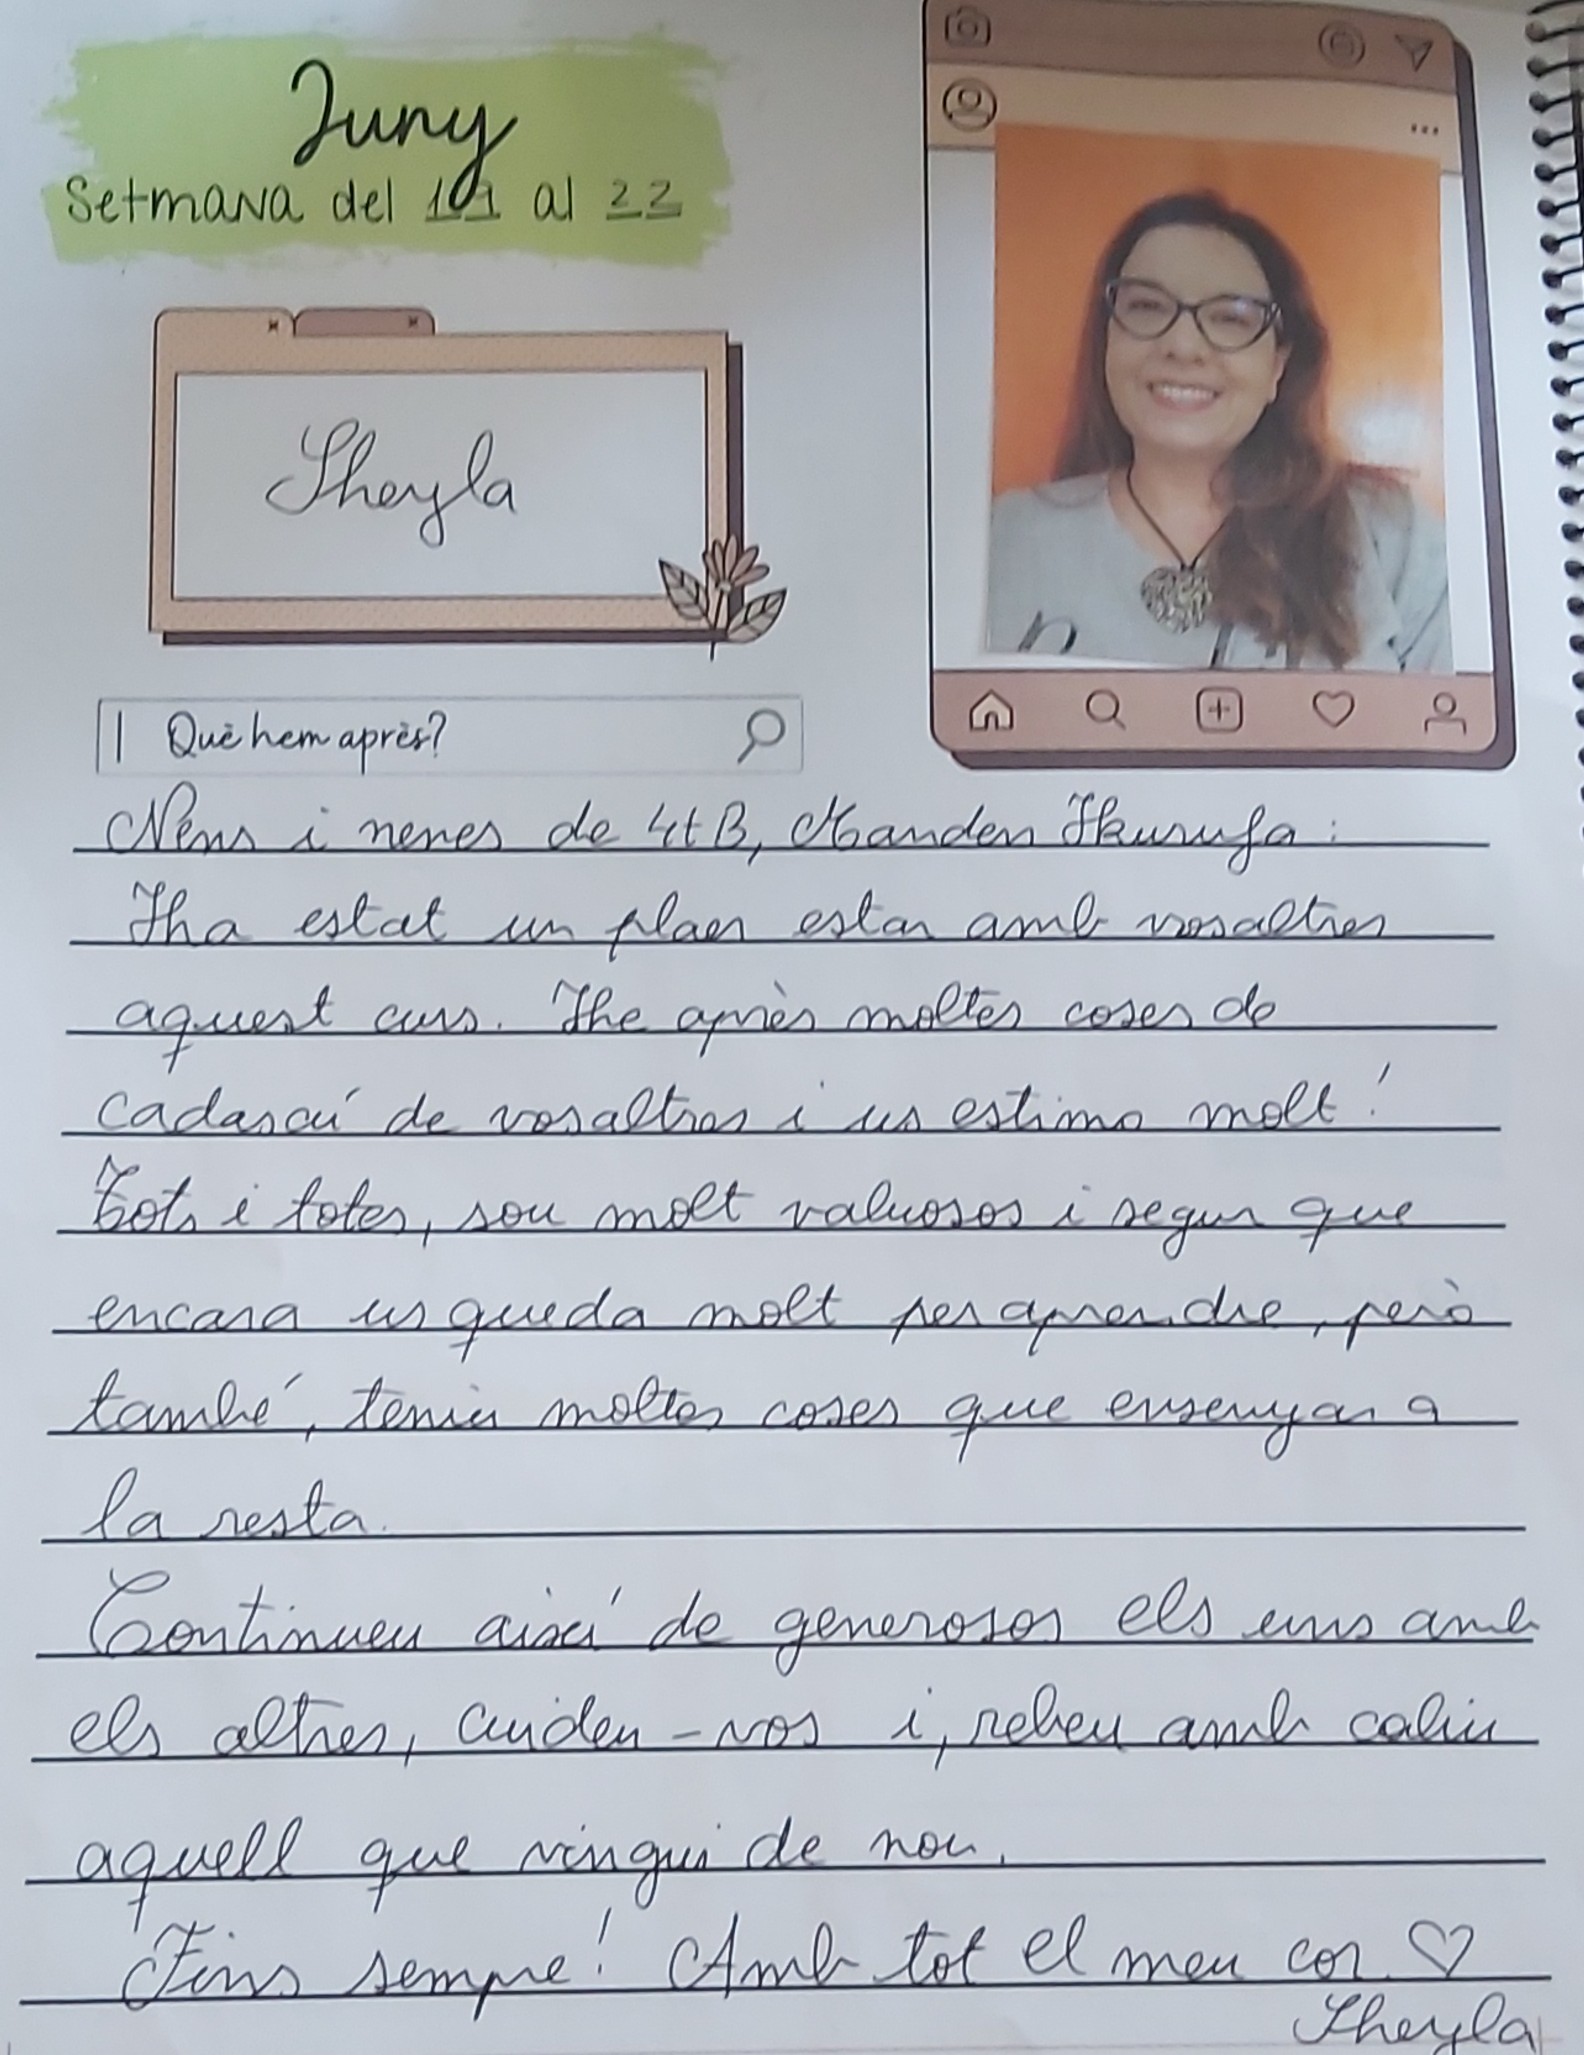 Juny
Setmana del al 22
Sheyla
Què hem après?
Nens i nenes de 4t B, Manden Fkurufa:
Ha estat un plaer estar amb vosaltres
aquest curs. He après moltes coses de
cadascú de vosaltres i us estimo molt!
Tots i totes, sou molt valuosos i segur que
encara us queda molt per aprendre, però
també, teniu moltes coses que ensenyar a
la resta.
Continueu així de generosos els uns amb
els altres, cuideu-vos i, rebeu amb caliu
aquell que vingui de nou.
Fins sempre! Amb tot el meu cor ♡
Sheyla